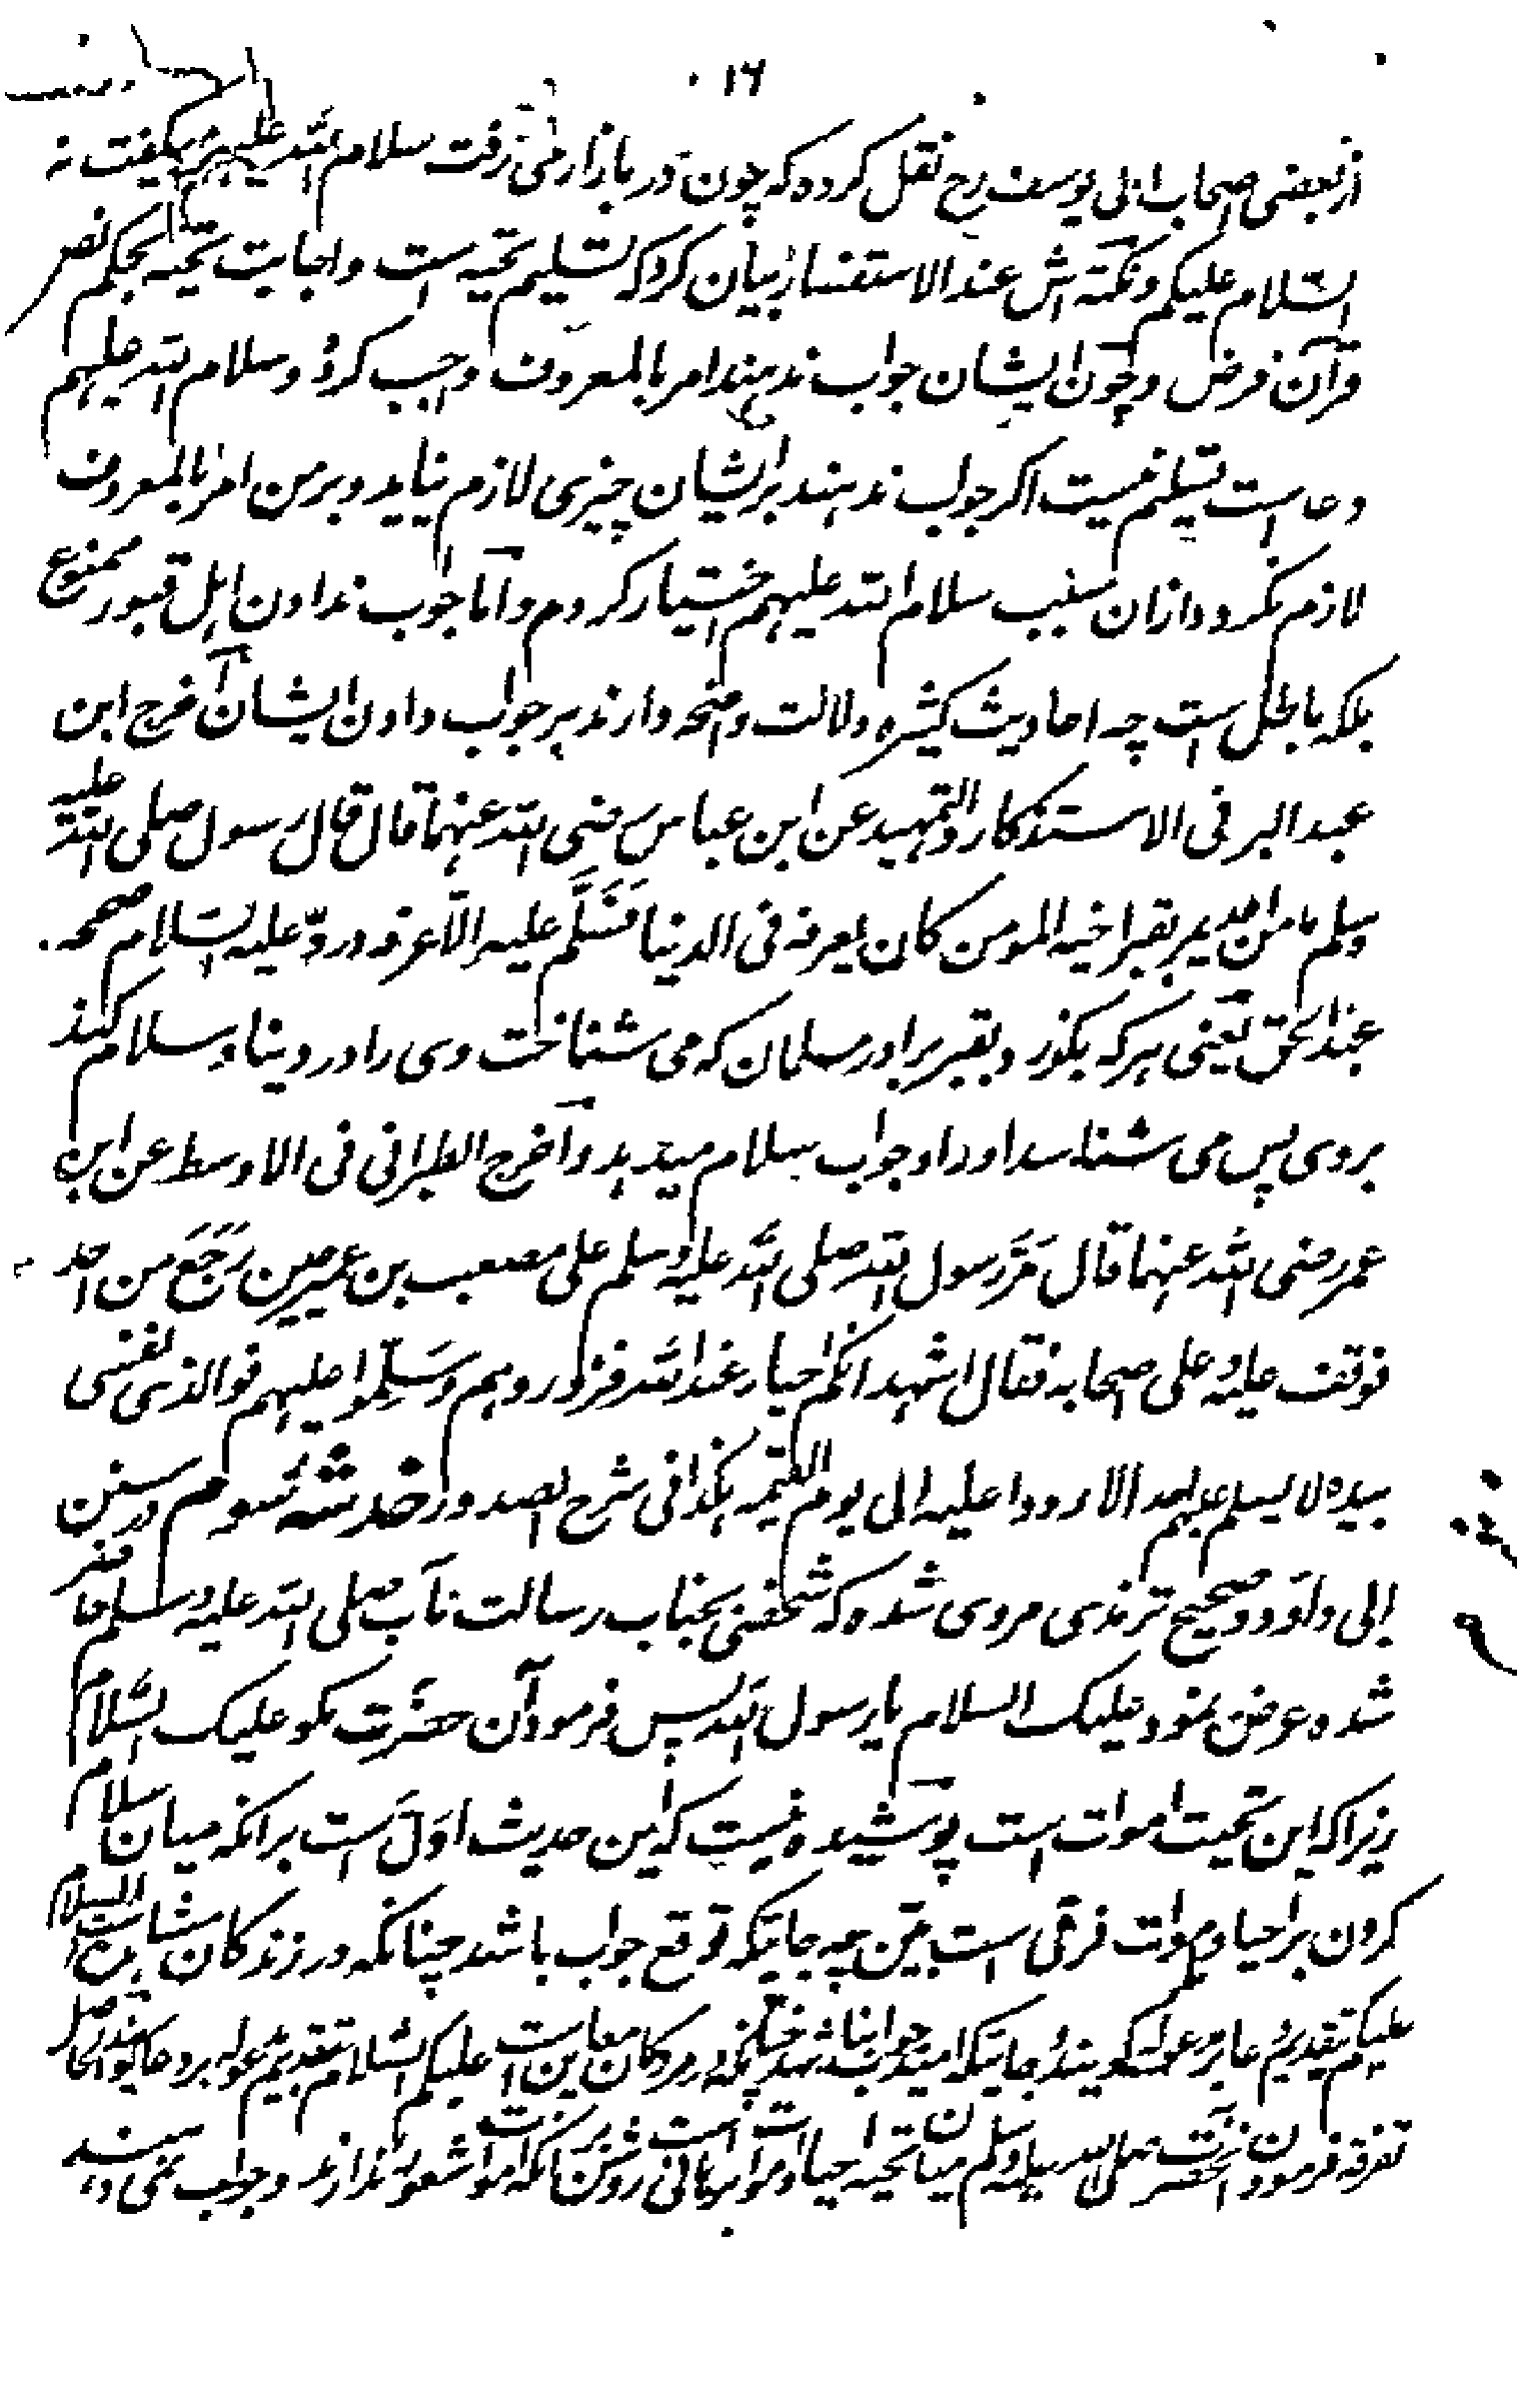 ۱۶
از بعضی اصحاب ابی یوسف رح نقل کرده که چون در بازار می رفت سلام الله علیهم میگفت نه
السلام علیکم و نکته اش عند الاستفسار بیان کرد که تسلیم تحیه است و اجابت تحیه بحکم نص
قرآن فرض و چون ایشان جواب ندهند امر بالمعروف واجب کرد و سلام الله علیهم
دعاست تسلیم نیست اکر جواب ندهند بر ایشان چیزی لازم نیاید و بر من امر بالمعروف
لازم نکردد ازان سبب سلام الله علیهم اختیار کردم و اما جواب ندادن اهل قبور ممنوع
بلکه باطل است چه احادیث کثیره دلالت واضحه دارند بر جواب دادن ایشان اخرج ابن
عبد البر فی الاستذکار والتمهید عن ابن عباس رضی الله عنهما قال قال رسول صلی الله علیه
وسلم ما من احد یمر بقبر اخیه المومن کان یعرفه فی الدنیا فیسلم علیه الا عرفه ورد علیه السلام صححه
عبد الحق یعنی هر که بکذرد بقبر برادر مسلمان که می شناخت وی را در دنیا و سلام کند
بر وی پس می شناسد اورا و جواب سلام میدهد و اخرج الطبرانی فی الاوسط عن ابن
عمر رضی الله عنهما قال مر رسول الله صلی الله علیه وسلم علی مصعب بن عمیر حین رجع من احد
فوقف علیه وعلی اصحابه فقال اشهد انکم احیاء عند الله فزوروهم وسلموا علیهم فوالذی نفسی
بیده لا یسلم علیهم احد الا ردوا علیه الی یوم القیمه هکذا فی شرح الصدور خدشه سوم در سنن
ابی داود و صحیح ترمذی مروی شده که شخصی بجناب رسالت مآب صلی الله علیه وسلم حاضر
شده عرض نمود علیک السلام یا رسول الله پس فرمود آن حضرت مکو علیک السلام
زیرا که این تحیت اموات است پوشیده نیست که این حدیث اول است بر انکه میان سلام
کردن بر احیا و اموات فرقی است بین چه جائیکه توقع جواب باشد چنانکه در زندکان شایع است السلام
علیکم بتقدیم کویند و جائیکه امید جواب نباشد چنانکه در مردکان علیکم السلام بتقدیم
تفرقه فرمودن آنحضرت صلی الله علیه وسلم میان تحیه احیا و اموات برهانی روشن است بر آنکه اموات شعور ندارند و جواب نمی دهند